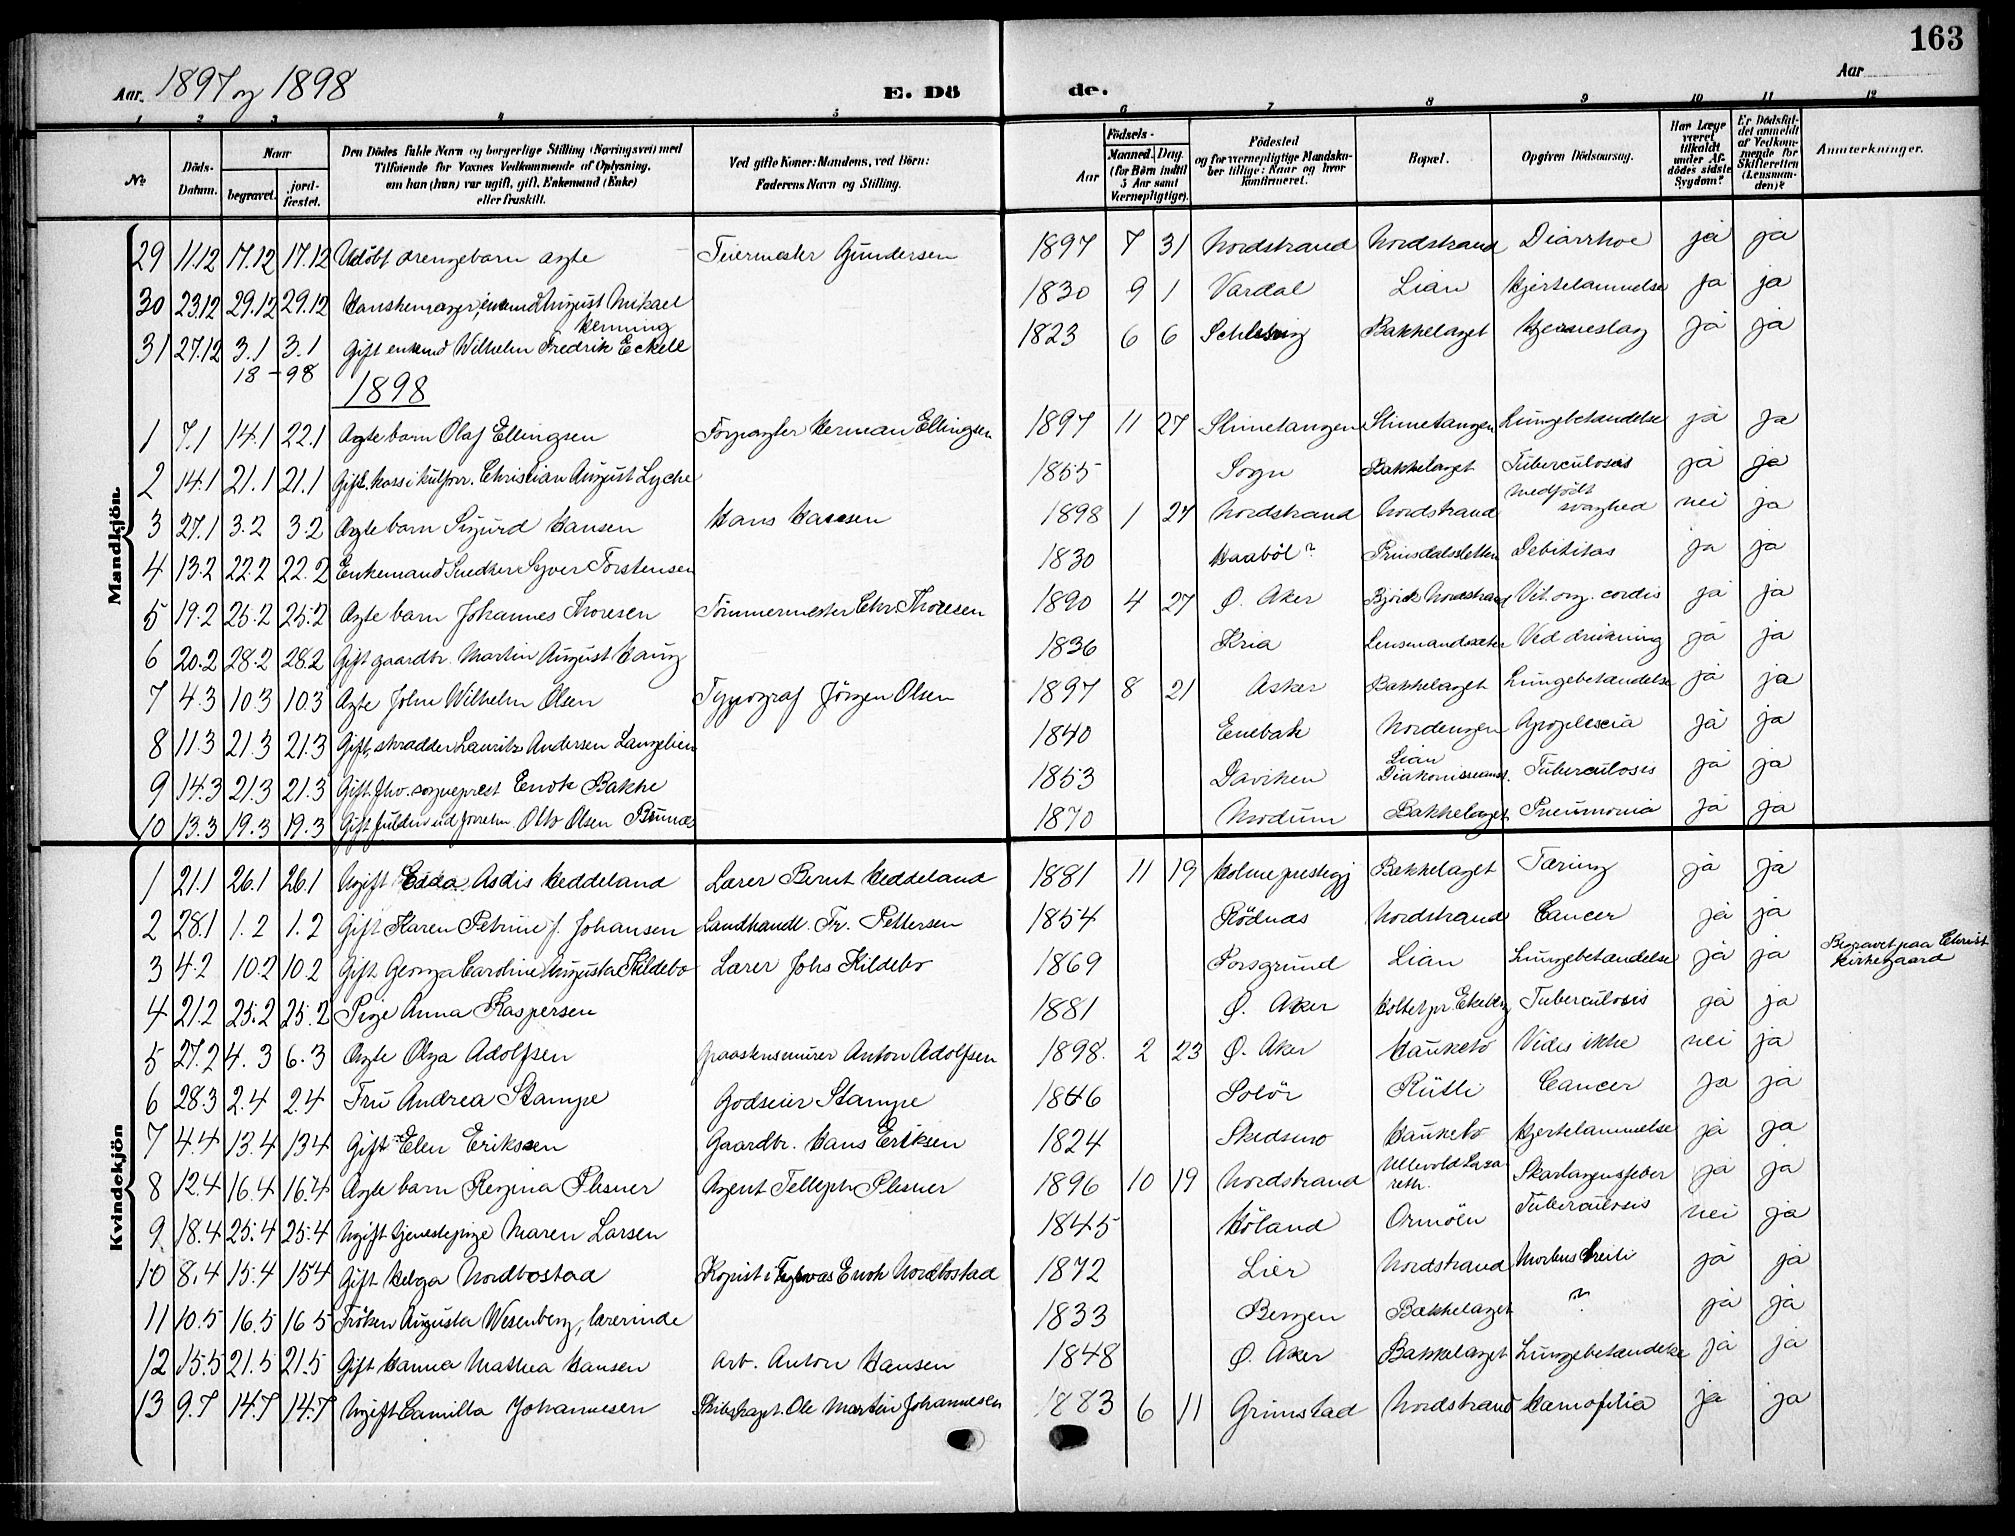 163
Aar. 1897 og 1898
E. Dö de.
Aar
1 2 3 4 5 6 7 8 9 10 11 12
No Döds-Datum. Naar begravet. jord-fæstet. Den Dödes fulde Navn og borgerlige Stilling (Næringsvei) med Tilföiende for Voxnes Vedkommende af Oplysning, om han (hun) var ugift, gift, Enkemand (Enke) eller fraskilt. Ved gifte Koner: Mandens, ved Börn: Faderens Navn og Stilling. Födsels- Aar Maaned. Dag. (for Börn indtil 5 Aar samt Værnepligtige). Födested og for værnepligtige Mandskaber tillige: Naar og hvor konfirmeret. Bopæl. Opgiven Dödsaarsag. Har Læge været tilkaldt under Afdödes sidste Sygdom? Er Dödsfaldet anmeldt af Vedkommende for Skifteretten (Lensmanden)? Anmærkninger.
Mandkjön.
29 11.12 17.12 17.12 Udöbt drengebarn ægte Feiermester Gundersen 1897 7 31 Nordstrand Nordstrand Diarrhoe ja ja
30 23.12 29.12 29.12 Hanskemager, enkemd August Mikael Henning 1830 9 1 Vardal Lian Hjertelammelse ja ja
31 27.12 3.1 3.1 Gift enkemd Wilhelm Fredrik Eckell 1823 6 6 Schlesvig Bækkelaget Hjerneslag ja ja
18-98
1898
1 7.1 14.1 22.1 Ægte barn Olaf Ellingsen Forpagter Herman Ellingsen 1897 11 27 Slimetangen Slimetangen Lungebetændelse ja ja
2 14.1 21.1 21.1 Gift. Christian August Lyche 1855 Sogn Bækkelaget Tuberculosis ja ja
3 27.1 3.2 3.2 Ægte barn Sigurd Hansen Hans Hansen 1898 1 27 Nordstrand Nordstrand Medfödt svaghed nei ja
4 13.2 22.2 22.2 Enkemand Snedker Syver Torstensen 1830 Haaböl? Prinsdalssletten Debilitas ja ja
5 19.2 25.2 25.2 Ægte barn Johannes Thoresen Tömmermester Chr. Thoresen 1890 4 27 Ø. Aker Björck Nordstrand Vit. org. cordis ja ja
6 20.2 28.2 28.2 Gift gaardbr. Martin August Haug 1836 Kria Lensmandssæter Ved drukning ja ja
7 4.3 10.3 10.3 Ægte John Wilhelm Olsen Typograf Jörgen Olsen 1897 8 21 Asker Bækkelaget Lungebetændelse ja ja
8 11.3 21.3 21.3 Gift, skrædder Lauritz Andersen Langelien 1840 Enebak Nordengen Apoplexia ja ja
9 14.3 21.3 21.3 Gift fhv. sogneprest Enok Bakke 1853 Daviken Lian Diakonisseanst. Tuberculosis ja ja
10 13.3 19.3 19.3 Gift Otto Olsen 1870 Modum Bækkelaget Pneumonia ja ja
Kvindekjön
1 21.1 26.1 26.1 Ugift Edda Asdis Heddeland Lærer Bernt Heddeland 1881 11 19 Holme prestegj Bækkelaget Tæring ja ja
2 28.1 1.2 1.2 Gift Karen Petrine f. Johansen Landhandl. Fr. Pettersen 1854 Rödnæs Nordstrand Cancer ja ja
3 4.2 10.2 10.2 Gift Georga Caroline Augusta Kildebo Lærer Johs Kildebo 1869 Porsgrund Lian Lungebetændelse ja ja Begravet paa Christ kirkegaard
4 21.2 25.2 25.2 Pige Anna Kaspersen 1881 Ø. Aker Holtet pr. Ekeberg Tuberculosis ja ja
5 27.2 4.3 6.3 Ægte Olga Adolfsen Graastensmurer Anton Adolfsen 1898. 2 23 Ø. Aker Hauketo Vides ikke nei ja
6 28.3 2.4 2.4 Fru Andrea Stampe Godseier Stampe 1846 Solör Rütli Cancer ja ja
7 4.4 13.4 13.4 Gift Elen Eriksen Gaardbr. Hans Eriksen 1824 Skedsmo Hauketo Hjertelammelse ja ja
8 12.4 16.4 16.4 Ægte barn Regina Plesner Agent Telleph Plesner 1896 10 19 Nordstrand Ullevold Lazareth. Skarlagensfeber ja ja
9 18.4 25.4 25.4 Ugift tjenestepige Maren Larsen 1845 Höland Ormöen Tuberculosis nei ja
10 8.4 15.4 15.4 Gift Helga Nordbostad Kopist i Enok Nordbostad 1872 Lier Nordstrand Morbus ja ja
11 10.5 16.5 16.5 Fröken Augusta Wesenberg, lærerinde 1833 Bergen Bækkelaget ? ja ja
12 15.5 21.5 21.5 Gift Hanna Mathea Hansen Arb. Anton Hansen 1848 Ø. Aker Bækkelaget Lungebetændelse ja ja
13 9.7 14.7 14.7 Ugift Camilla Johannesen Skibskapt. Ole Martin Johannesen 1883 6 11 Grimstad Nordstrand Hæmofilia ja ja